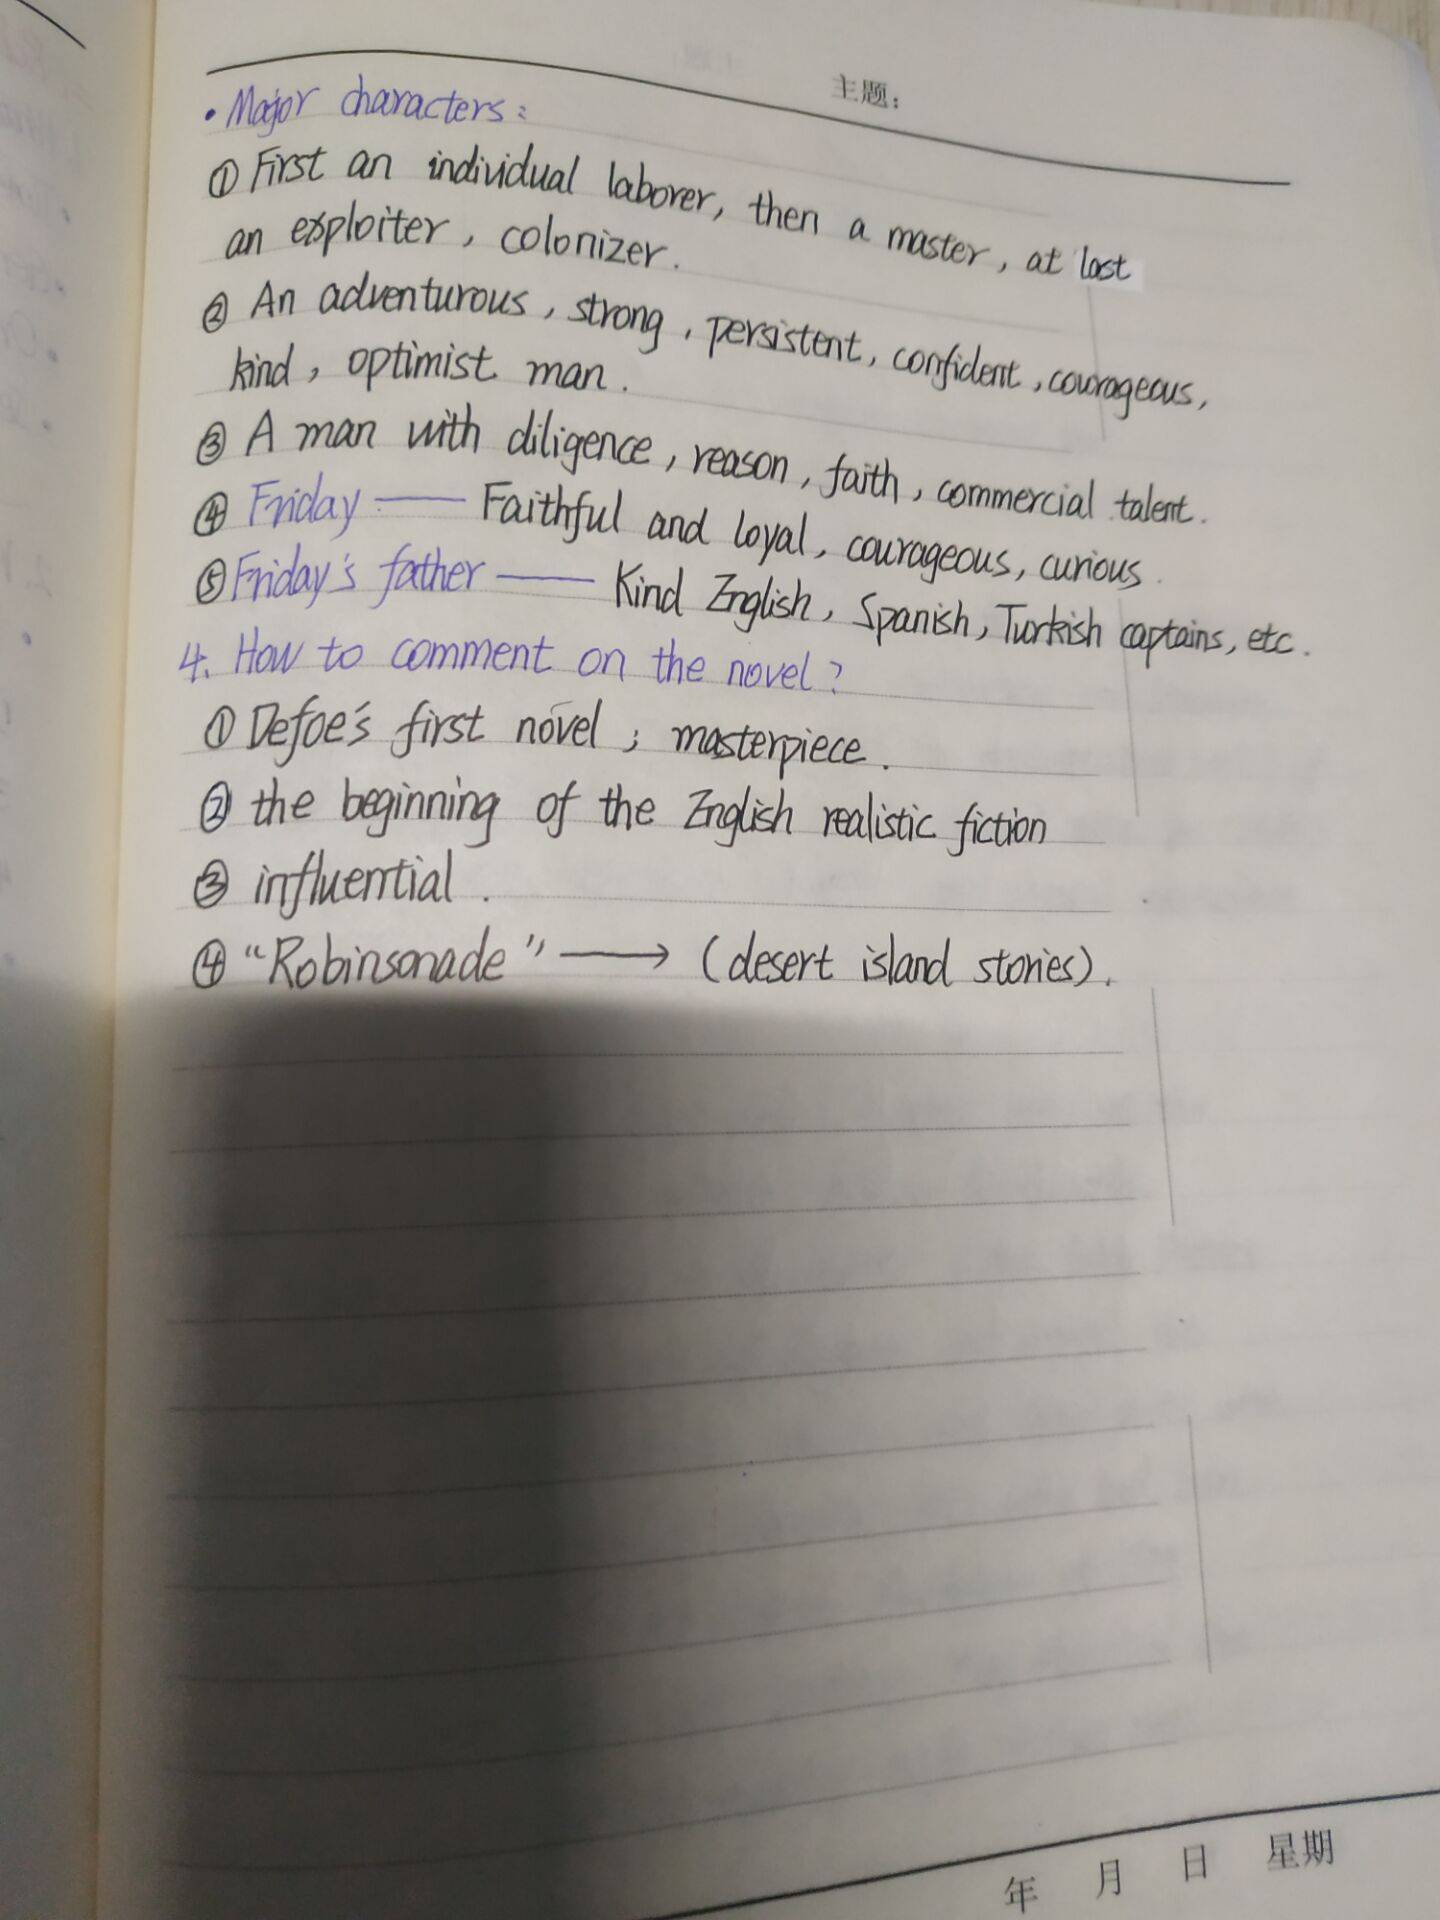 主题:
• Major characters:
① First an individual laborer, then a master, at last
an exploiter, colonizer.
② An adventurous, strong, persistent, confident, courageous,
kind, optimist man.
③ A man with diligence, reason, faith, commercial talent.
④ Friday —— Faithful and loyal, courageous, curious.
⑤ Friday's father —— Kind English, Spanish, Turkish captains, etc.
4. How to comment on the novel?
① Defoe's first novel; masterpiece.
② the beginning of the English realistic fiction
③ influential.
④ “Robinsonade” → (desert island stories).
年 月 日 星期